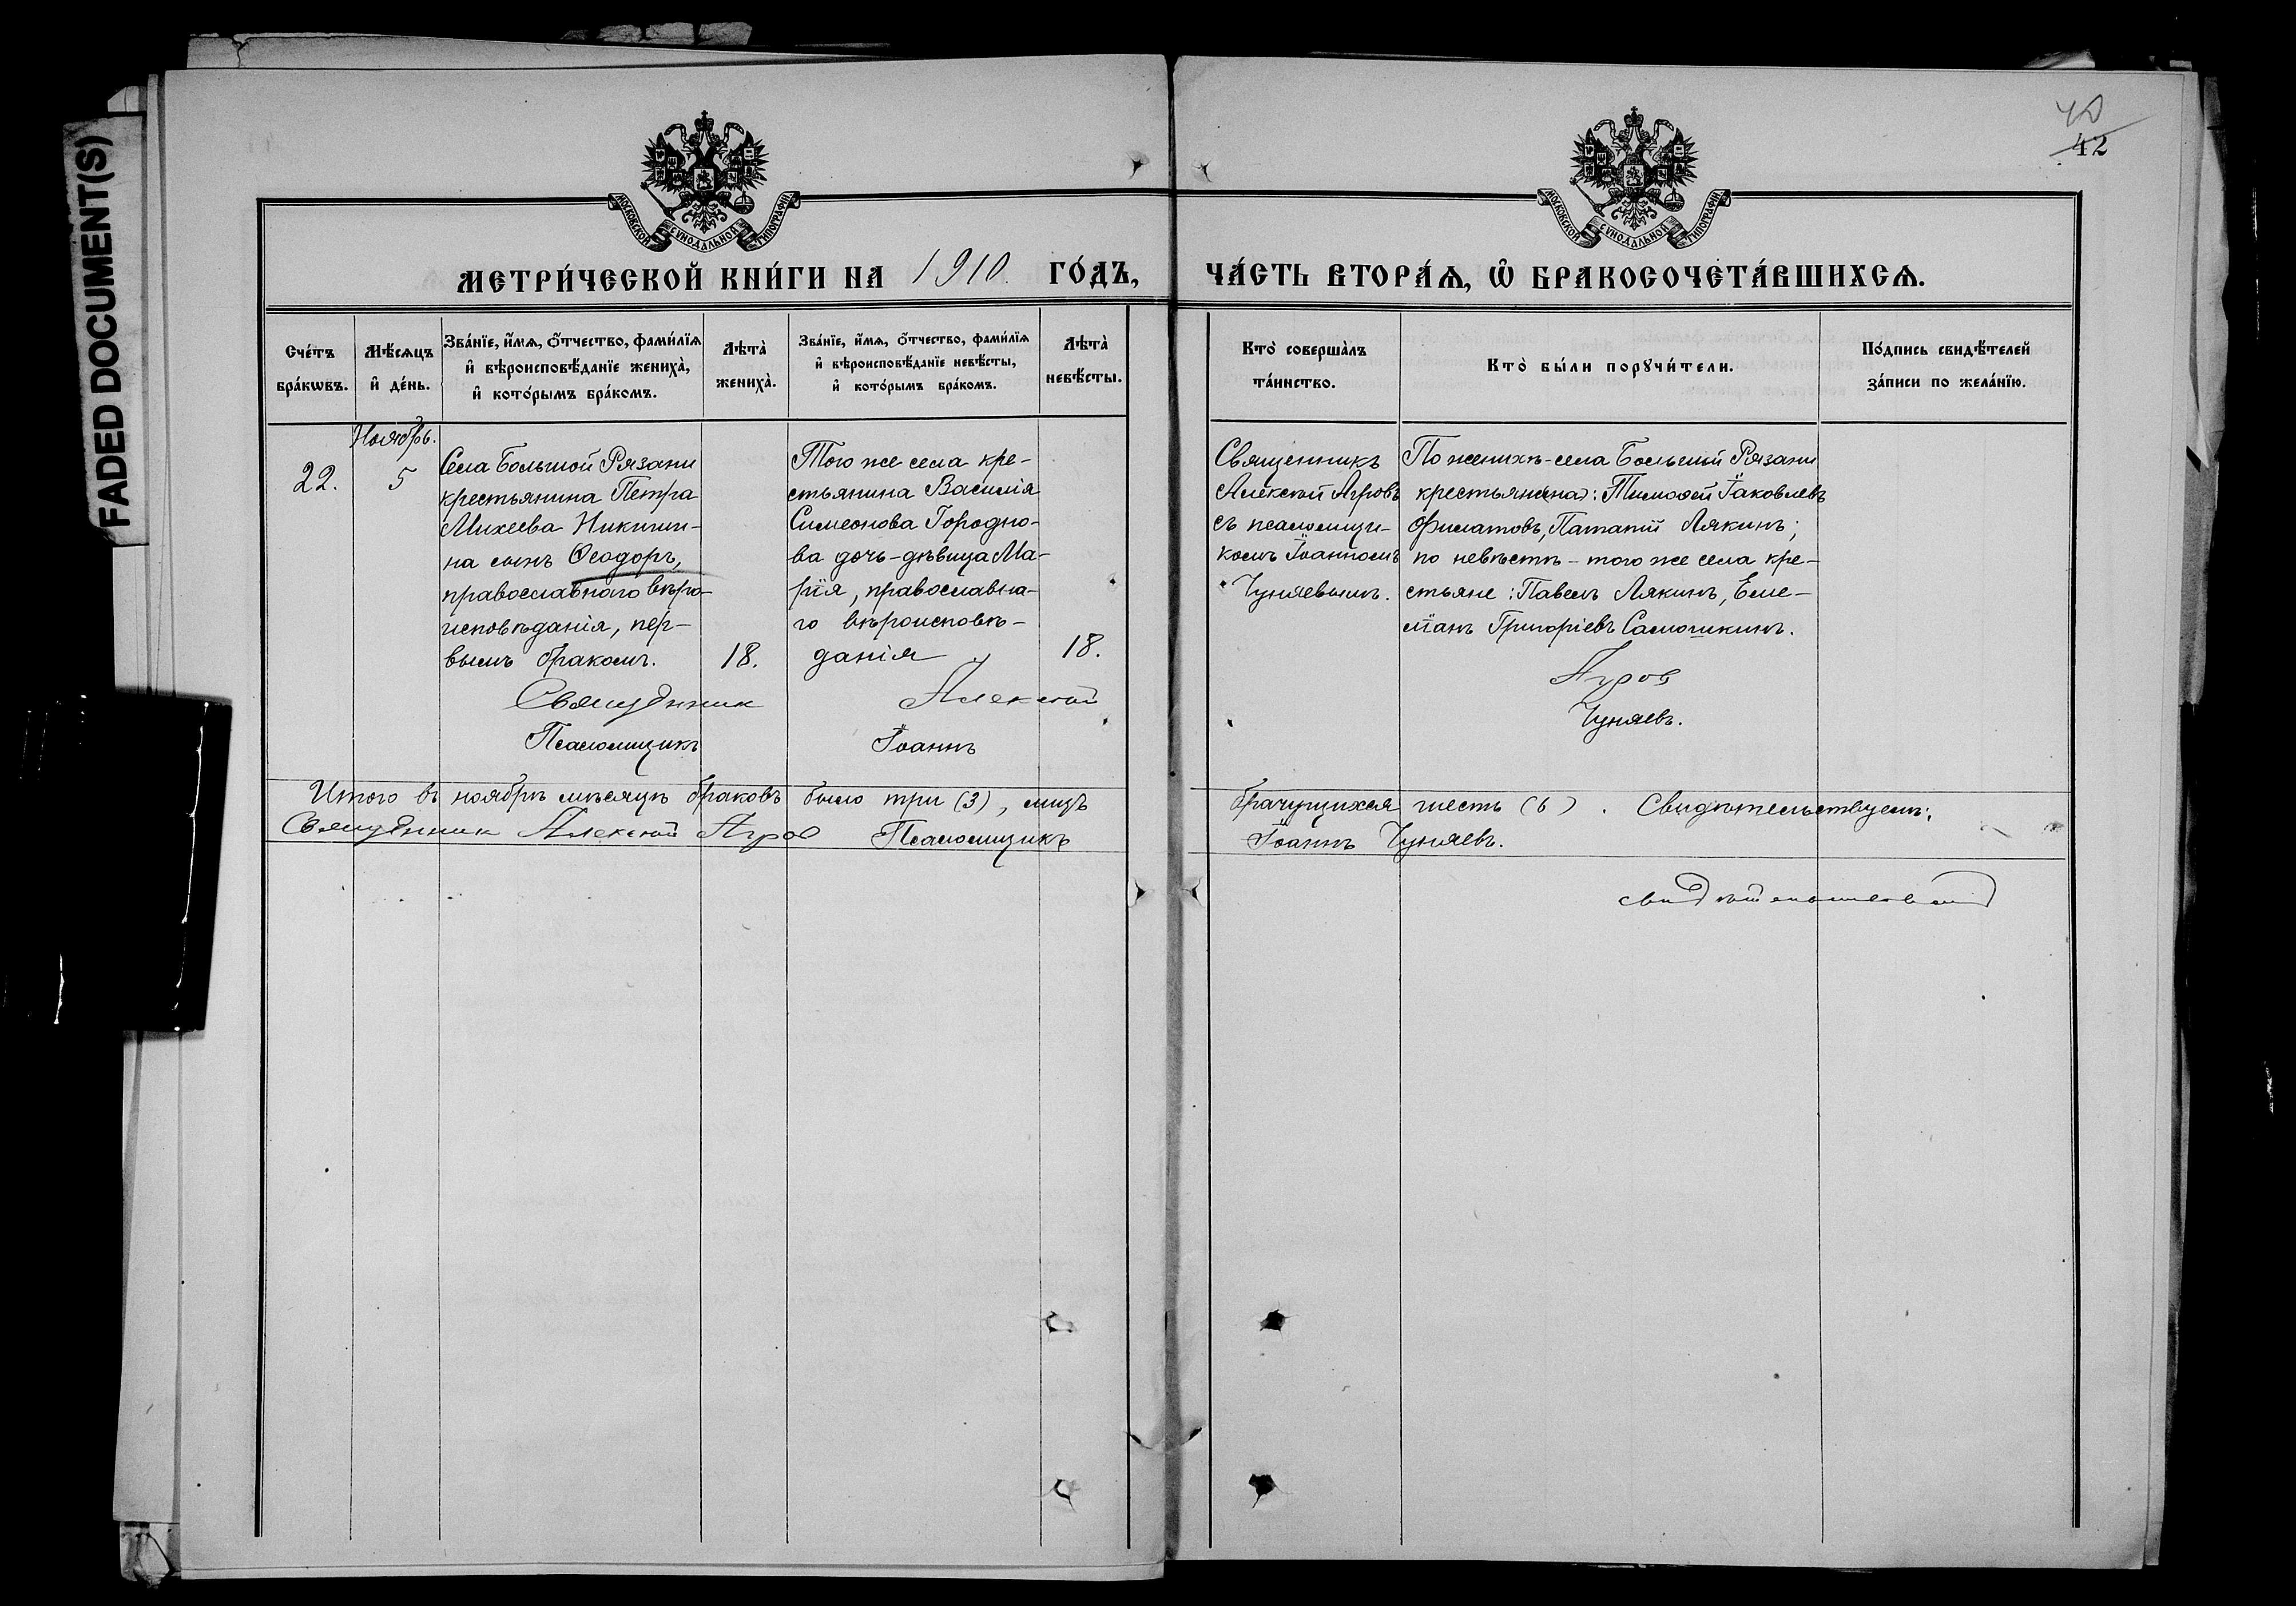 FADED DOCUMENT(S)
40
42
МОСКОВСКОЙ СѴНОДАЛЬНОЙ ТИПОГРАФІИ
МОСКОВСКОЙ СѴНОДАЛЬНОЙ ТИПОГРАФІИ
МЕТРИ́ЧЕСКОЙ КНИ́ГИ НА 1910 ГО́ДЪ, ЧА́СТЬ ВТОРА́Ѧ, Ѽ БРАКОСОЧЕТА́ВШИХСѦ.
Сче́тъ
бра́кωвъ.
Мѣ́сѧцъ
и҆ де́нь.
Зва́нїе, и҆́мѧ, ѻ҆́тчество, фами́лїѧ
и҆ вѣроисповѣ́данїе женихà,
и҆ кото́рымъ бра́комъ.
Лѣтà
женихà.
Зва́нїе, и҆́мѧ, ѻ҆́тчество, фами́лїѧ
и҆ вѣроисповѣ́данїе невѣ́сты,
и҆ кото́рымъ бра́комъ.
Лѣтà
невѣ́сты.
Кто̀ соверша́лъ
та́инство.
Кто̀ бы́ли порꙋчи́тели.
По́дпись свидѣ́телей
за́писи по жела́нїю.
Ноябрь.
22.
5
Села Большой Рязани
крестьянина Петра
Михеева Никити-
на сынъ Ѳеодоръ,
православного вѣро-
исповѣданія, пер-
вымъ бракомъ.
18.
Того же села кре-
стьянина Василія
Симеонова Городно-
ва дочь-дѣвица Ма-
рїя, православна-
го вѣроисповѣ-
данія
18.
Священникъ
Алексѣй Агровъ
съ псаломщи-
комъ Їоанномъ
Чуняевымъ.
По женихѣ-села Большой Рязани
крестьяне(на): Тимоѳей Їаковлевъ
Филатовъ, Патапій Лякинъ;
по невѣстѣ - того же села кре-
стьяне: Павелъ Лякинъ, Еме-
лїанъ Григоріевъ Самошкинъ.
Священник Алексѣй Агров
Псаломщикъ Їоаннъ Чуняевъ.
Итого въ ноябрѣ мѣсяцѣ браковъ было три (3), лицъ брачущихся шесть (6). Свидѣтельствуемъ:
Священник Алексѣй Агров Псаломщикъ Їоаннъ Чуняевъ.